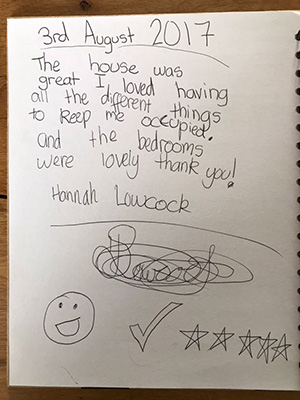 3rd August 2017
The house was
great I loved having
all the different things
to keep me occupied.
and the bedrooms
were lovely thank you!
Hannah Lowcock